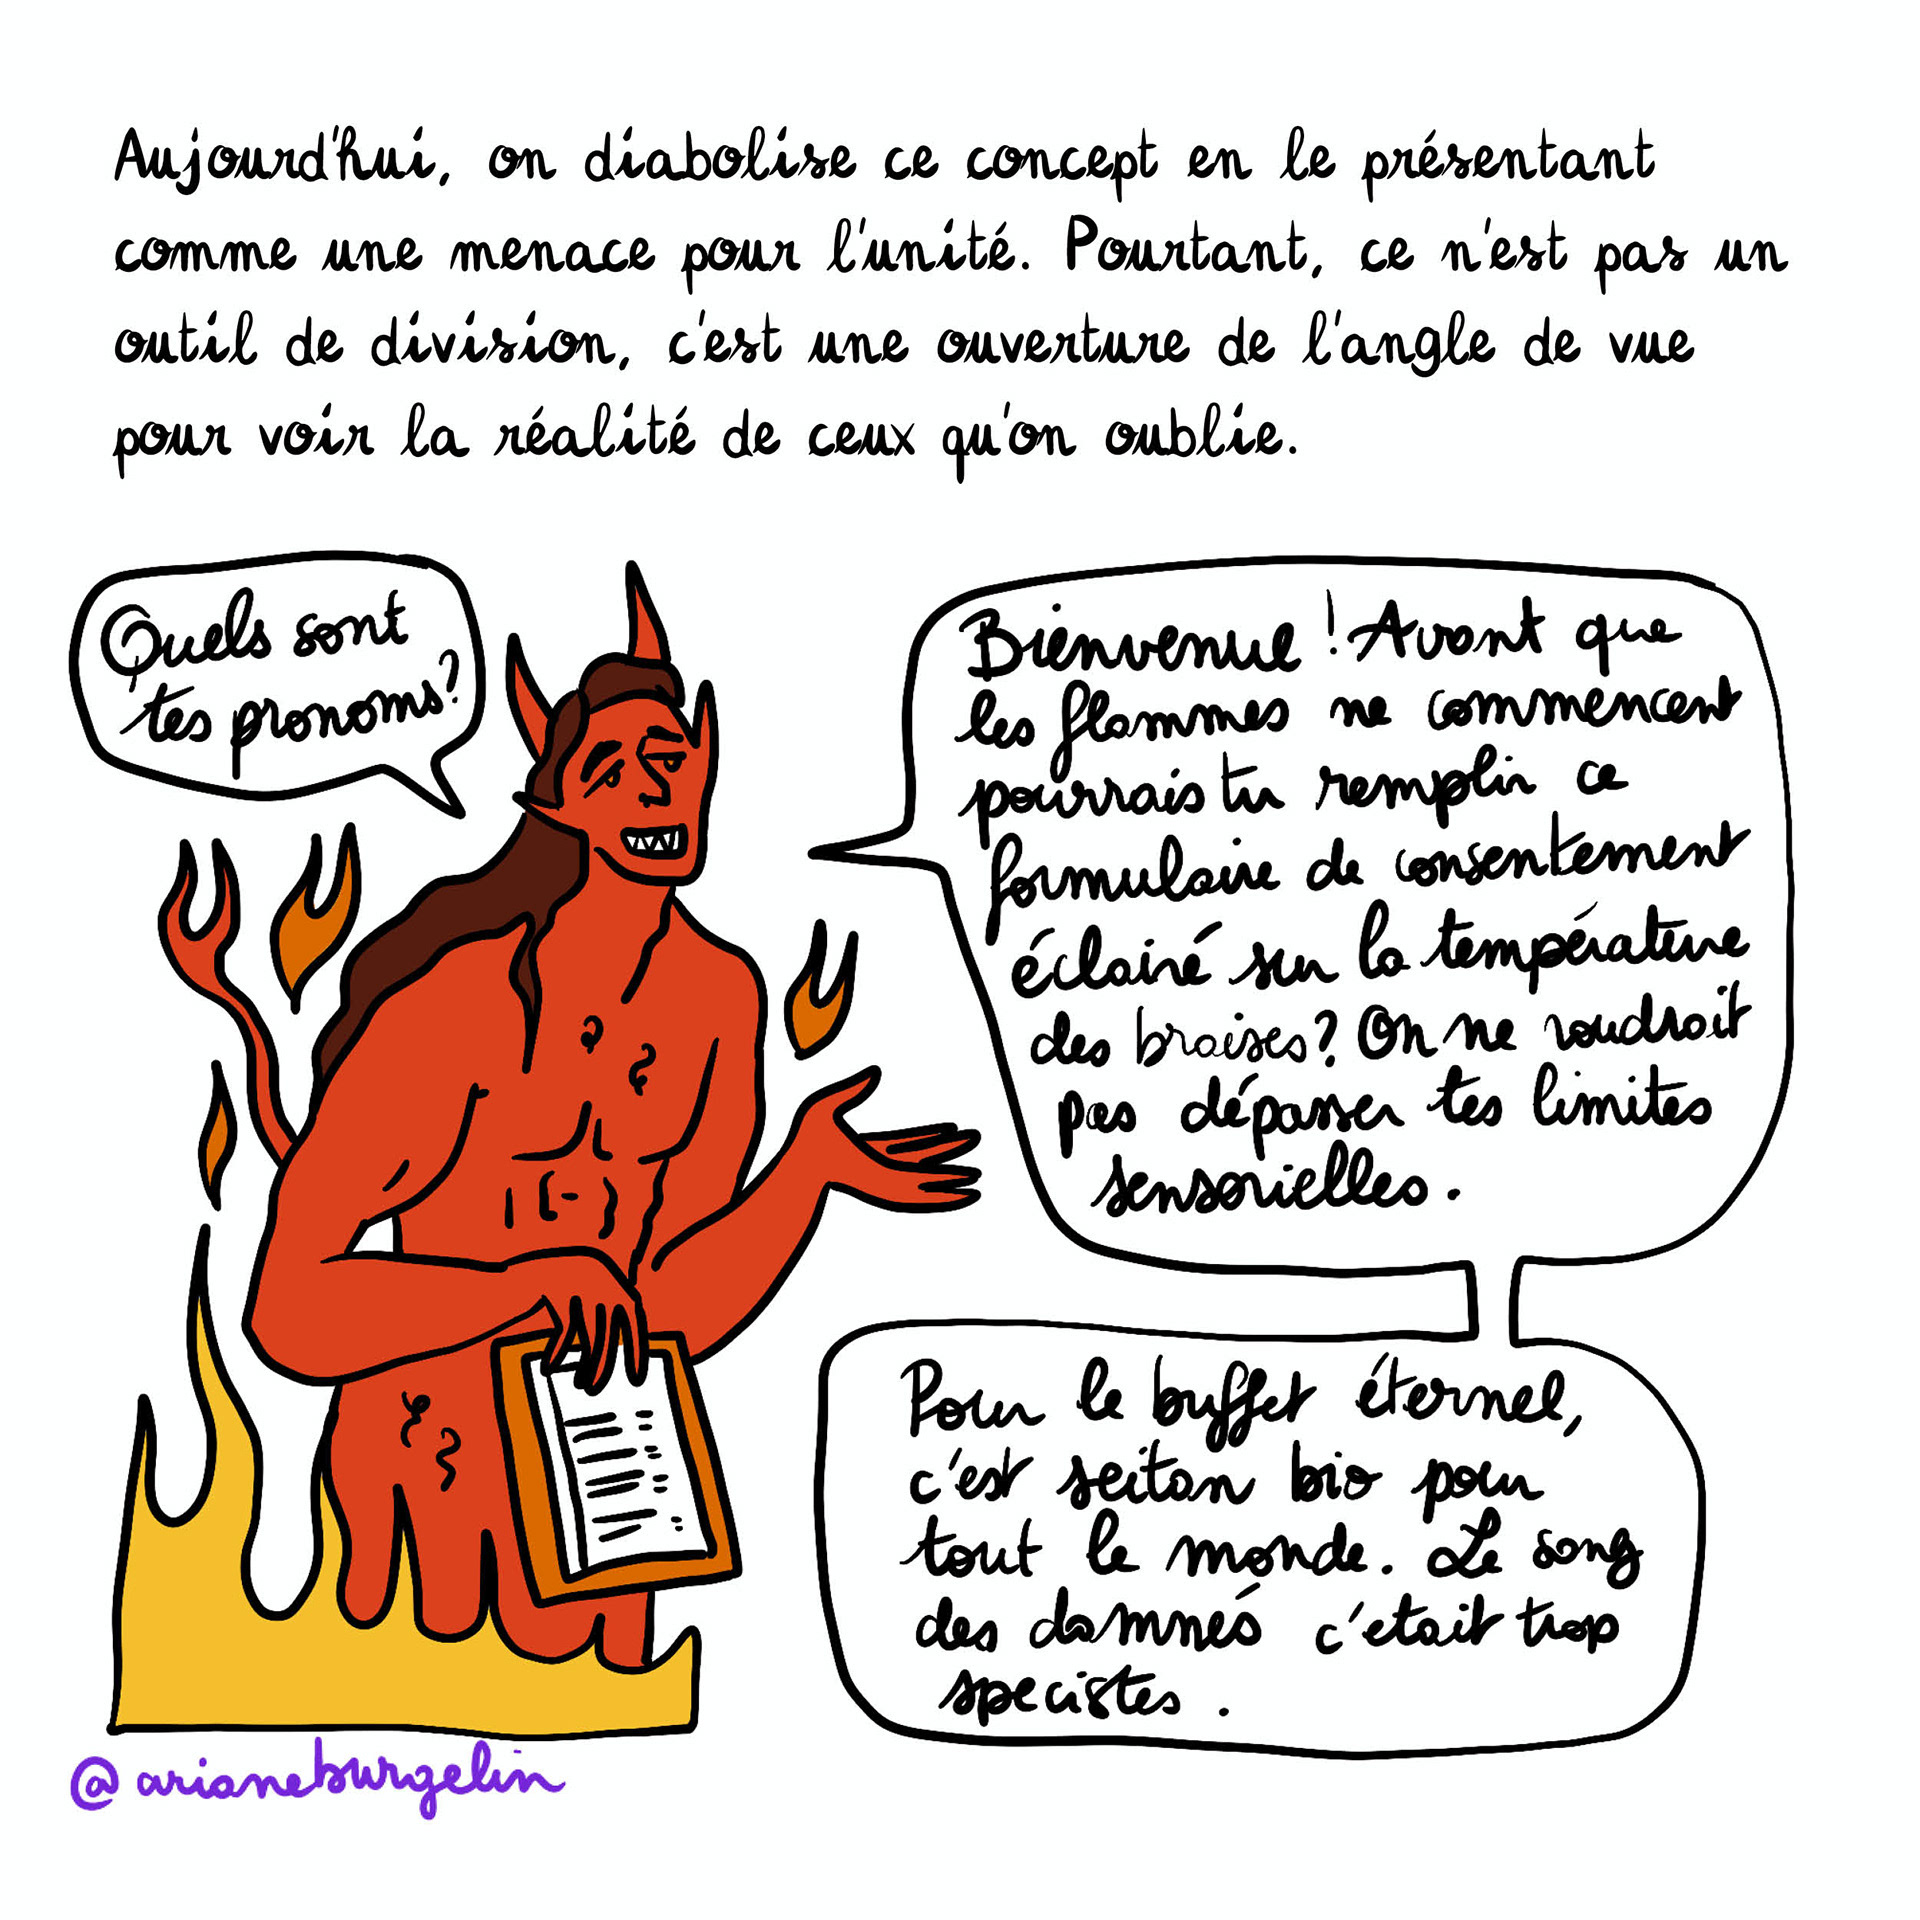 Aujourd'hui, on diabolise ce concept en le présentant
comme une menace pour l'unité. Pourtant, ce n'est pas un
outil de division, c'est une ouverture de l'angle de vue
pour voir la réalité de ceux qu'on oublie.
Quels sont
tes pronoms?
Bienvenue! Avant que
les flammes ne commencent
pourrais tu remplir ce
formulaire de consentement
éclairé sur la température
des braises? On ne voudrait
pas dépasser tes limites
sensorielles.
Pour le buffet éternel,
c'est seitan bio pour
tout le monde. Le sang
des damnés c'etait trop
specistes.
@arianeburgelin